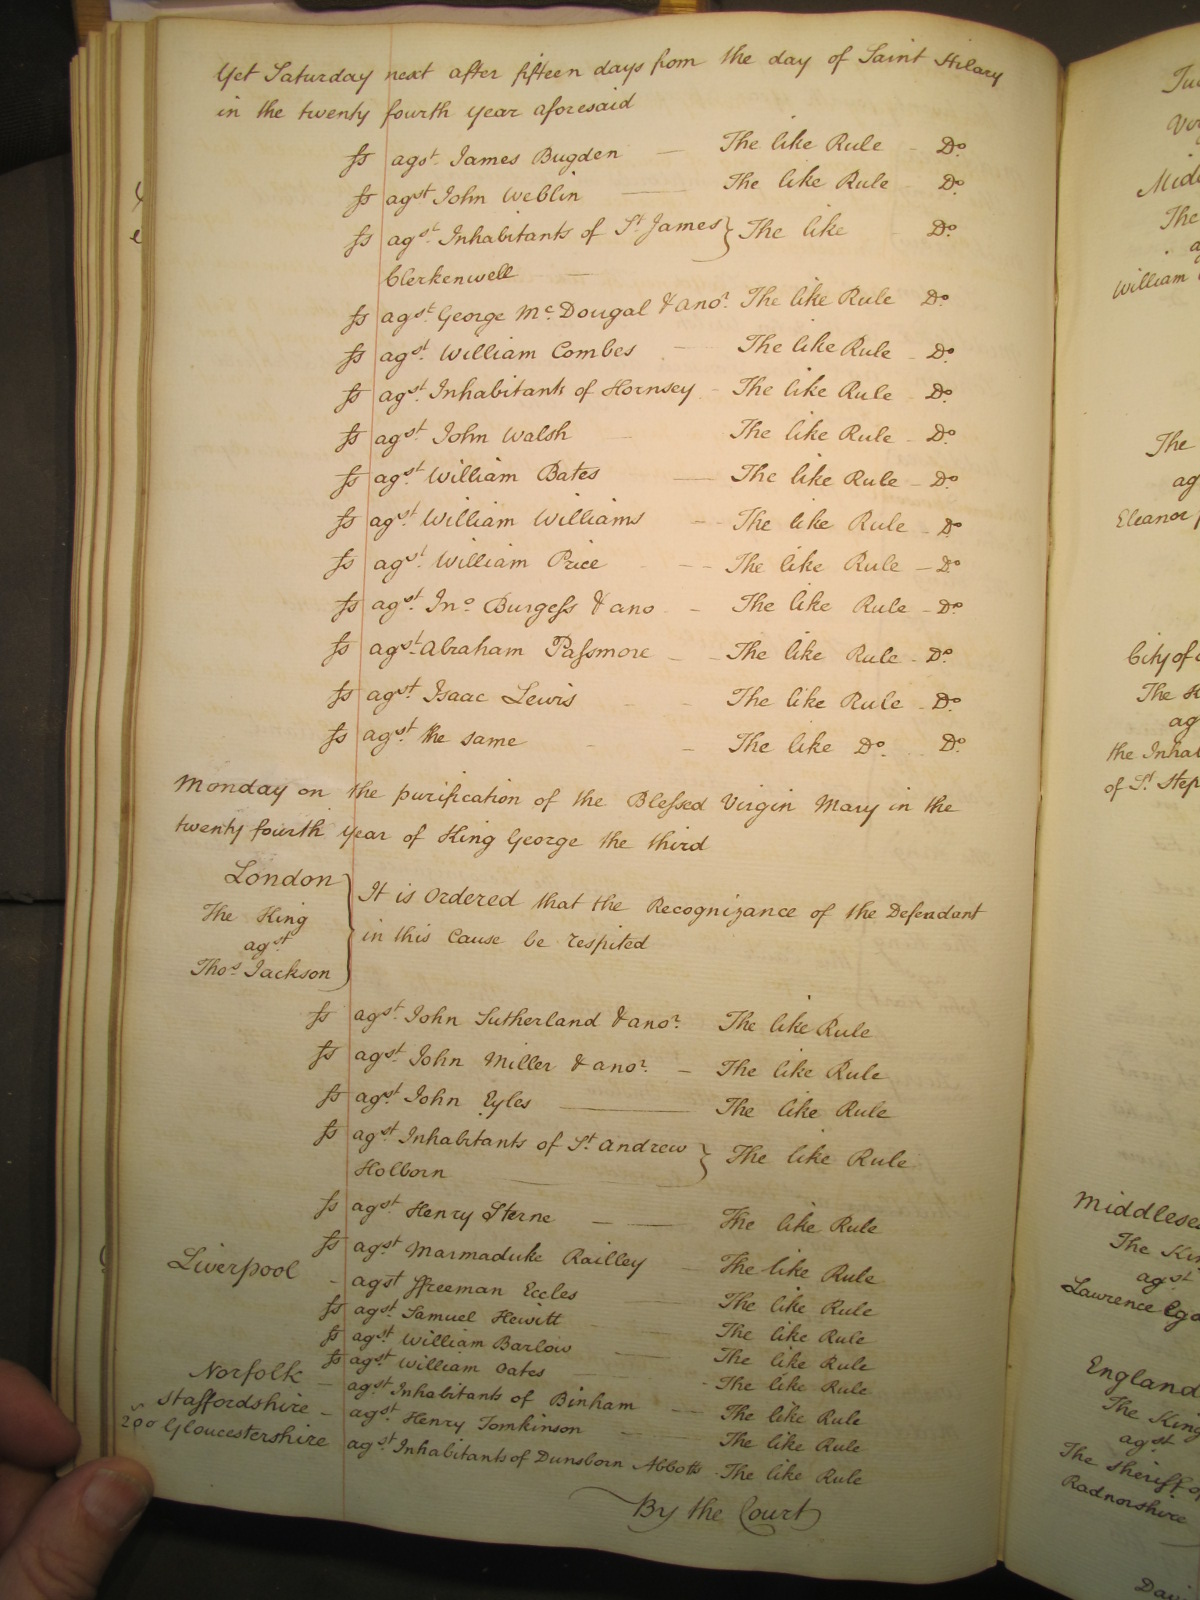 Yet Saturday next after fifteen days from the day of Saint Hilary
in the twenty fourth year aforesaid
ss agst. James Bugden — The like Rule - Do.
ss agst John Weblin — The like Rule Do.
ss agst. Inhabitants of St James } The like Do.
Clerkenwell —
ss agst. George Mc. Dougal & anor. The like Rule Do.
ss agst. William Combes - The like Rule - Do.
ss agst. Inhabitants of Hornsey - The like Rule - Do.
ss agst. John Walsh The like Rule - Do.
ss agst. William Bates — The like Rule - Do.
ss agst. William Williams -- The like Rule - Do.
ss agst. William Price -- The like Rule - Do.
ss agst. Jno. Burgess & ano - The like Rule - Do.
ss agst. Abraham Passmore -- The like Rule - Do.
ss agst. Isaac Lewis - The like Rule - Do.
ss agst. the same - The like Do. Do.
Monday on the purification of the Blessed Virgin Mary in the
twenty fourth year of King George the third
London
The King
agst
Thos. Jackson
It is Ordered that the Recognizance of the Defendant
in this Cause be respited
ss agst. John Sutherland & anor. The like Rule
ss agst. John Miller & anor. - The like Rule
ss agst. John Eyles — The like Rule
ss agst. Inhabitants of St. Andrew } The like Rule
Holborn —
ss agst. Henry Sterne — The like Rule
ss agst. Marmaduke Railley - The like Rule
Liverpool - agst ffreeman Eccles — The like Rule
ss agst. Samuel Hewitt The like Rule
ss agst. William Barlow — The like Rule
ss agst. William Oates - The like Rule
Norfolk — agst. Inhabitants of Binham — The like Rule
Staffordshire - agst. Henry Tomkinson - The like Rule
Gloucestershire agst. Inhabitants of Dunsborn Abbotts - The like Rule
By the Court
The
William
The
ag
Eleanor
City of
The
ag
the Inhab
of St. Step
Middlesex
The Kin
agst
Lawrence
England
The King
agst
The Sheriff of
Radnorshire